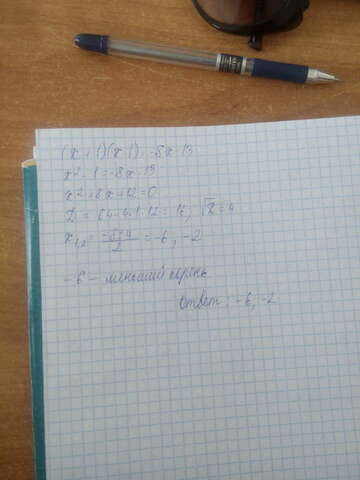 (x+1)(x-1)=-8x-13
x²-1=-8x-13
x²+8x+12=0
D=64-4·1·12=16, √D=4
x₁,₂=(-8±4)/2=-6,-2
-6 - меньший корень
Ответ: -6,-2